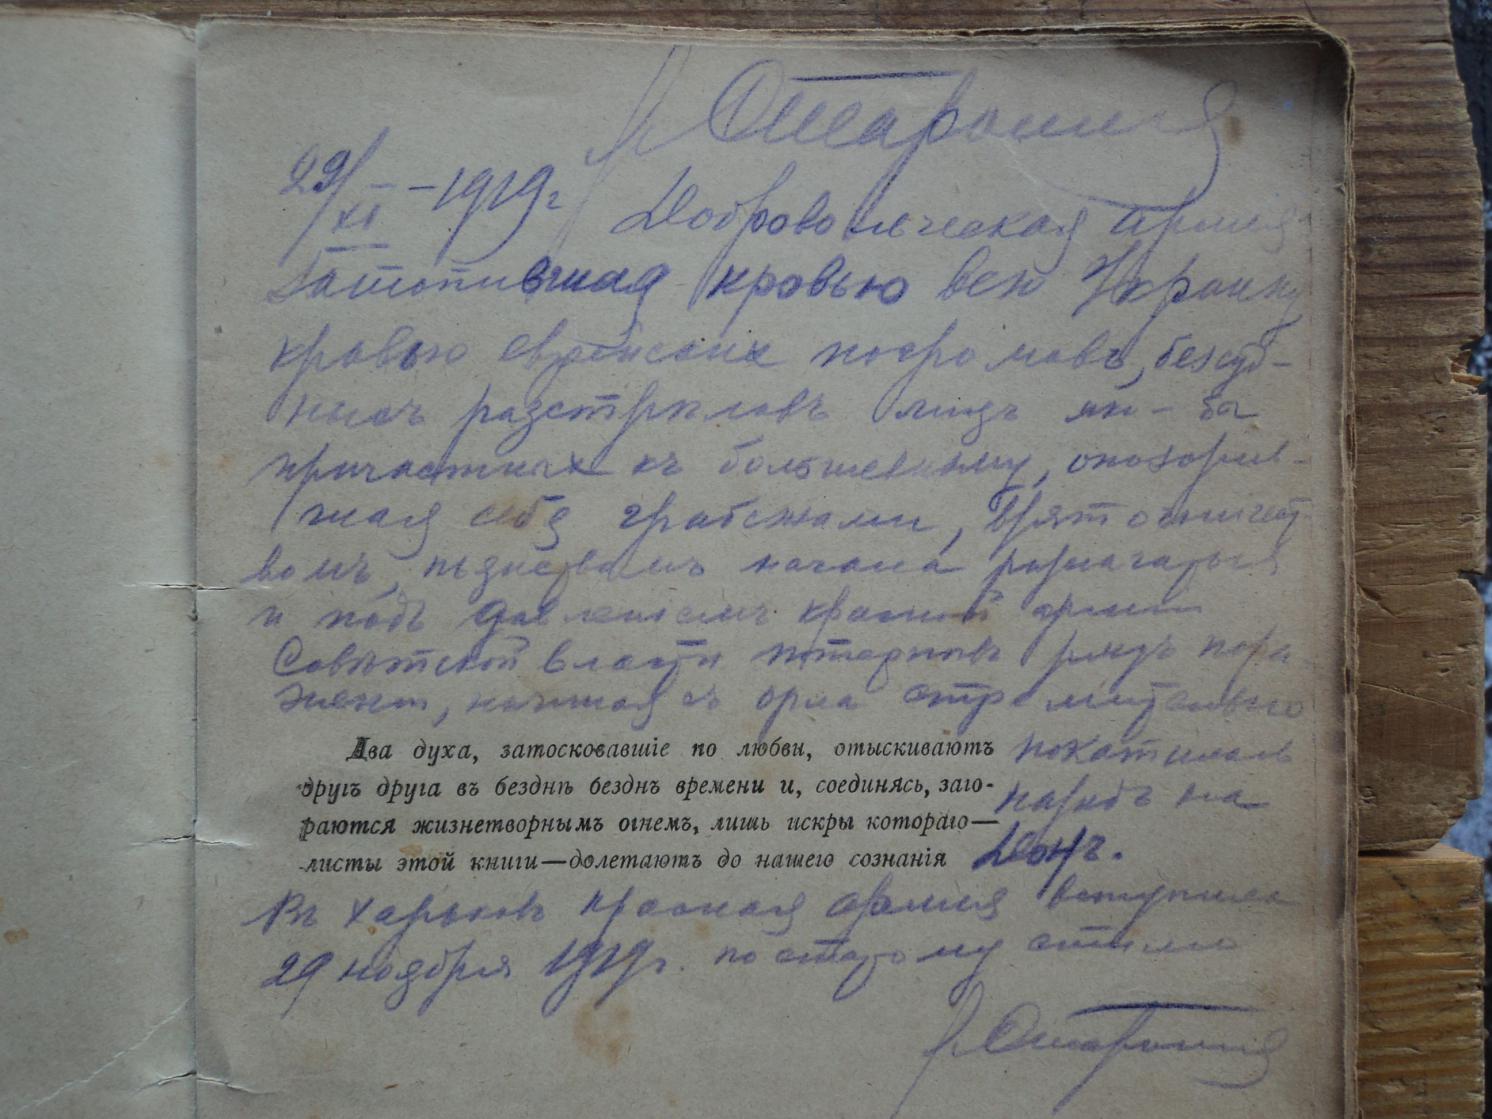 29/XI – 1919 г
Добровольческая армия
Затопившая кровью всю Украину
кровью еврейских погромовъ, безсуд-
ныхъ разстрѣловъ лицъ яко-бы
причастных къ большевизму, опозорив-
шая себя грабежами, взяточничест-
вомъ, пьянствомъ начала разлагаться
и подъ давленіемъ красной арміи
Совѣтской власти потерпѣвъ рядъ пора-
жений, начиная съ орла стремительно
покатилась
назадъ на
Донъ.
Два духа, затосковавшіе по любви, отыскиваютъ
другъ друга въ безднѣ безднъ времени и, соединясь, заго-
раются жизнетворнымъ огнемъ, лишь искры котораго—
листы этой книги—долетаютъ до нашего сознанія
Въ Харьковъ красная армия вступила
29 ноября 1919 г. по старому стилю